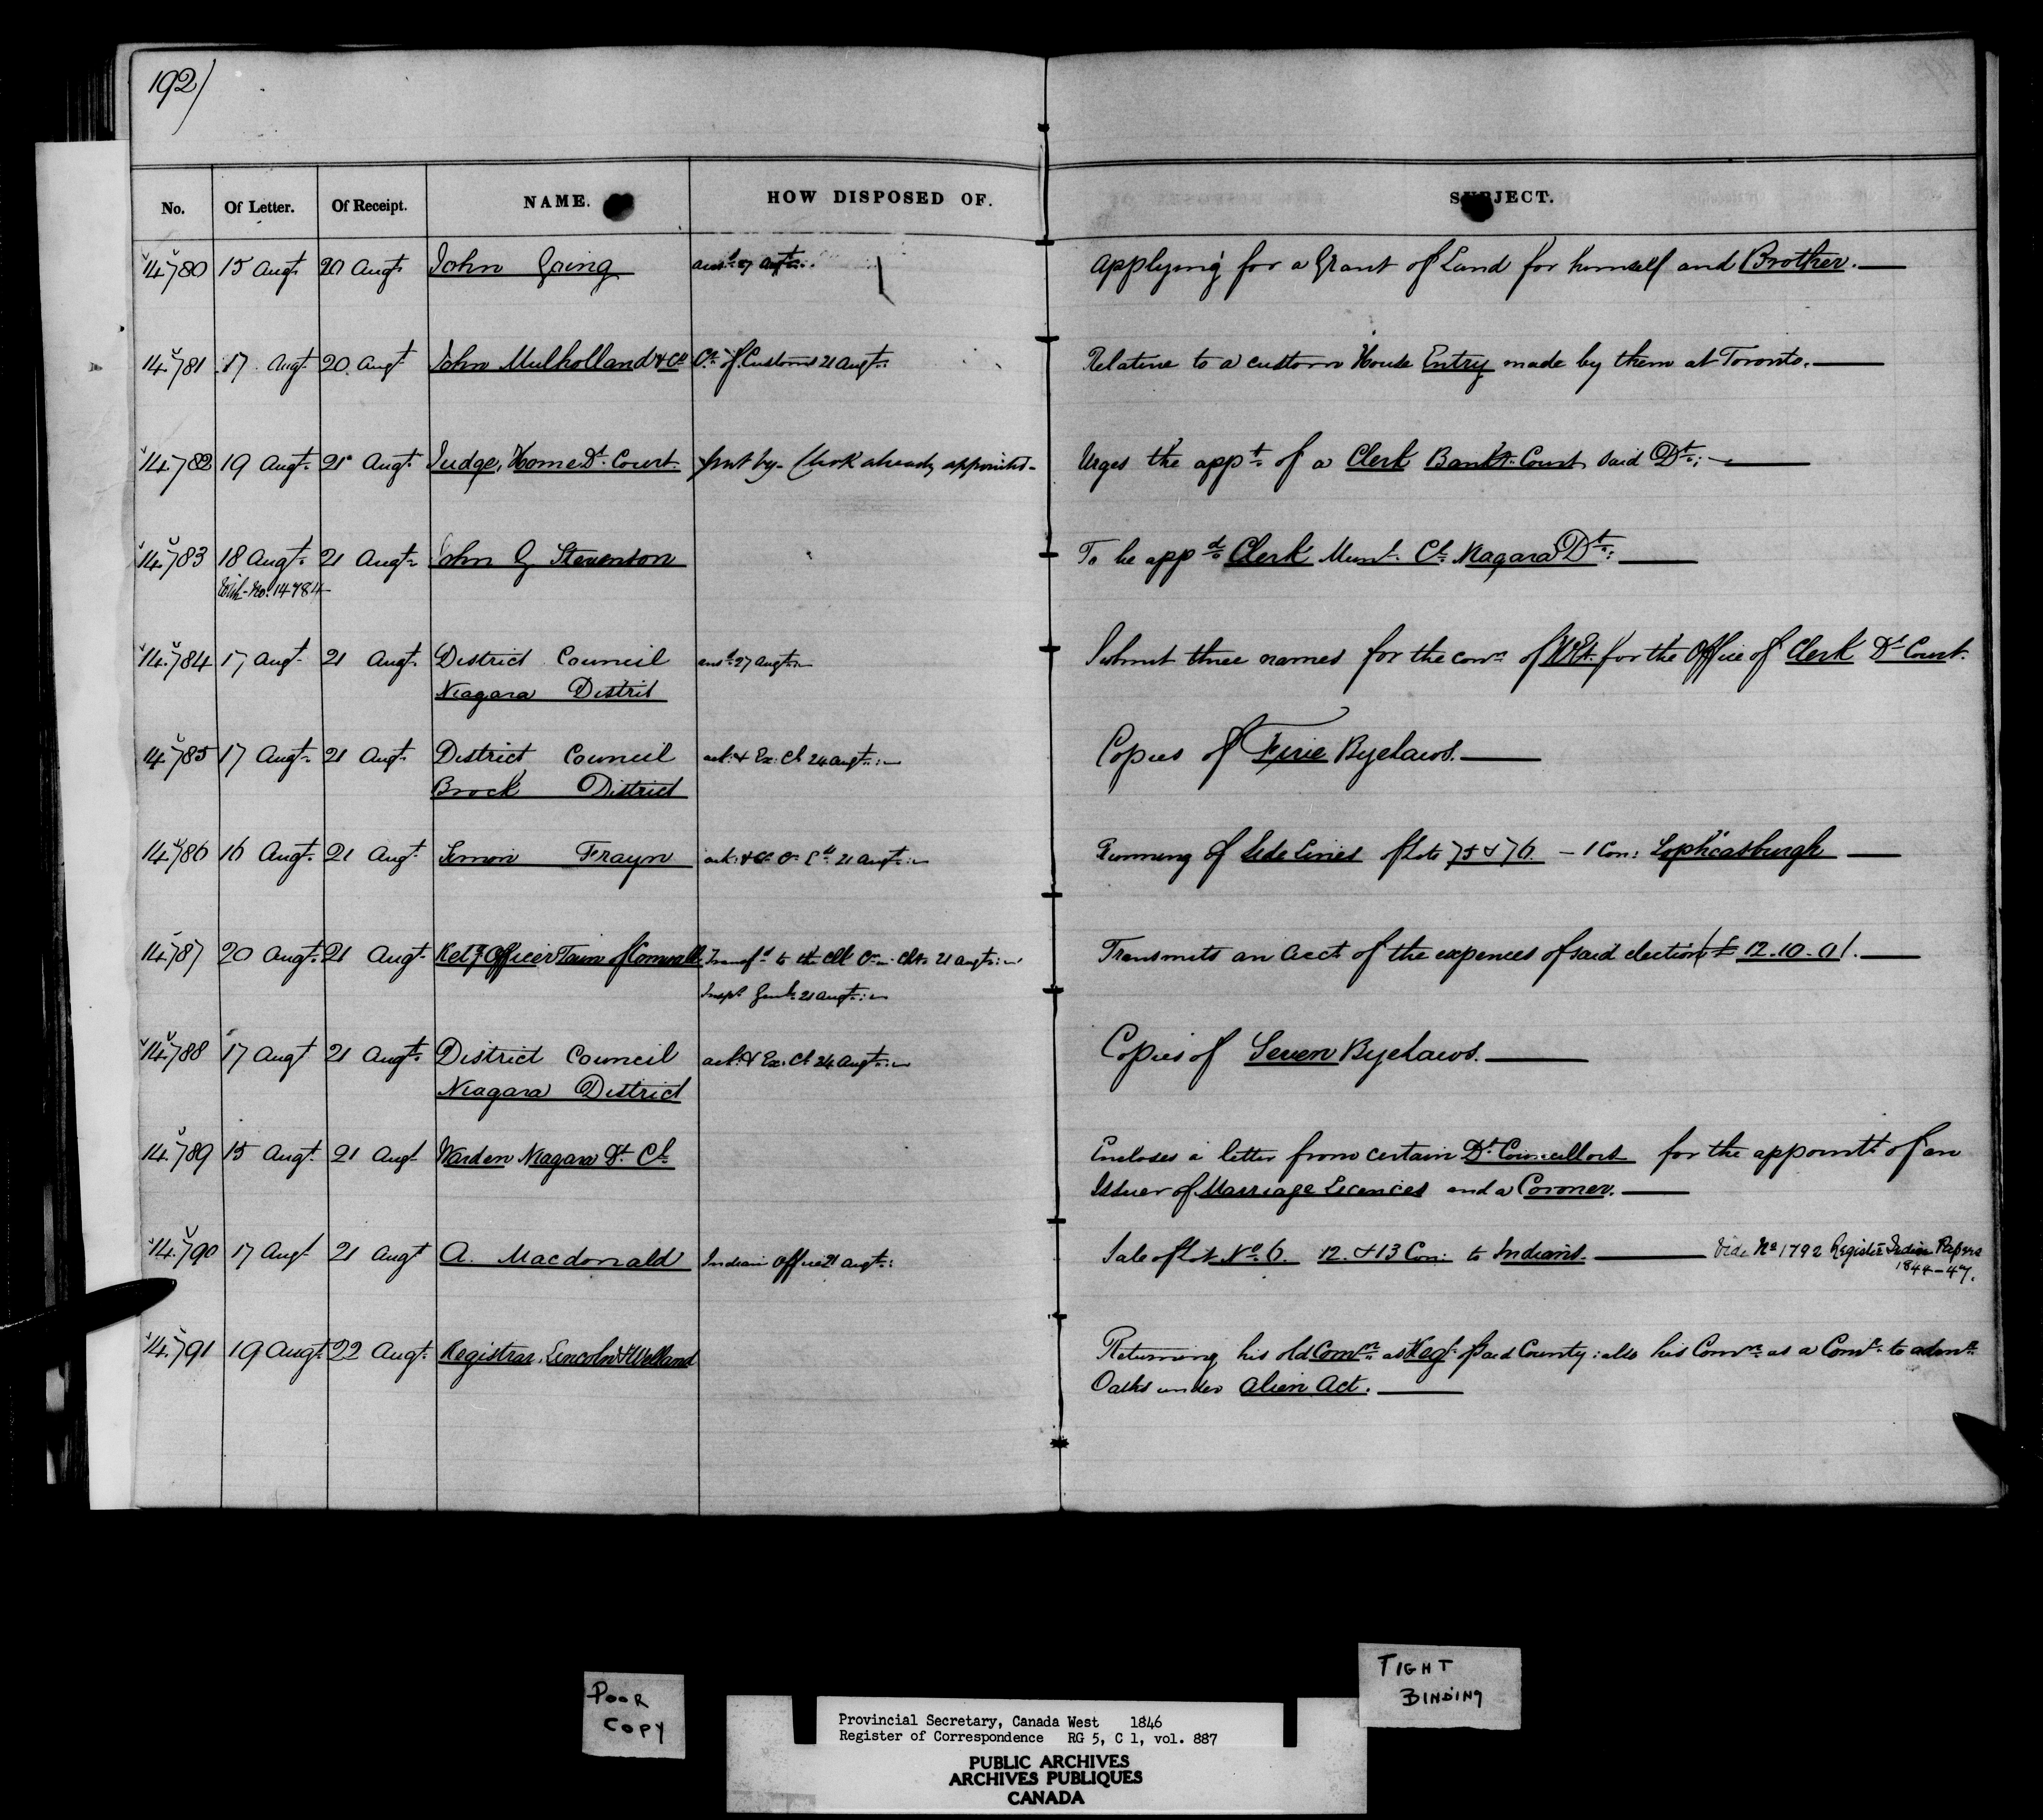 192/
No. Of Letter. Of Receipt. NAME. HOW DISPOSED OF. SUBJECT.
14.780 15 Augt. 20 Augt. John Going ansd. 27 Augt. Applying for a Grant of Land for himself and Brother.
14.781 17 Augt. 20 Augt John Mulholland & Co. Cr. of Customs 21 Augt. Relative to a custom House Entry made by them at Toronto.
14.782 19 Augt. 21 Augt. Judge, Home Dt. Court put by. Clerk already appointed - Urges the appt. of a Clerk Bankt. Court said Dt.
14.783 18 Augt. 21 Augt. John G Stevenson To be appd. Clerk Munl. Cl. Niagara Dt.
With No. 14784
14.784 17 Augt. 21 Augt. District Council ansd. 27 Augt. Submit three names for the con. of for the Office of Clerk Dt. Court.
Niagara District
14.785 17 Augt. 21 Augt. District Council ack: & Ex. Cl. 24 Augt. Copies of Five Byelaws.
Brock District
14.786 16 Augt. 21 Augt. Simon Frayn ack: & 21 Augt. Running of Side Lines of Lots 75 & 76 - 1 Con: Sophiasburgh
14.787 20 Augt. 21 Augt. Retg. Officer Town of Cornwall Transfd. to the Clk 21 Augt. Transmits an Acct. of the expences of said election £12.10.0/.
Inspr. Genl. 21 Augt.
14.788 17 Augt 21 Augt. District Council ack: & Ex. Cl. 24 Augt. Copies of Seven Byelaws.
Niagara District
14.789 15 Augt. 21 Augt Warden Niagara Dt. Cl. Encloses a letter from certain Dt. Councillors for the appointt. of an
Issuer of Marriage Licences and a Coroner.
14.790 17 Augt 21 Augt A. Macdonald Indian Office 21 Augt. Sale of Lot No. 6. 12. & 13 Con: to Indians. Vide No 1792 Register Indian Papers
1844-47.
14.791 19 Augt. 22 Augt. Registrar, Lincoln & Welland Returning his old Comn. as Regr. of said County: also his Comn. as a Comr. to admr.
Oaths under Alien Act.
POOR
COPY
TIGHT
BINDING
Provincial Secretary, Canada West 1846
Register of Correspondence RG 5, C 1, vol. 887
PUBLIC ARCHIVES
ARCHIVES PUBLIQUES
CANADA